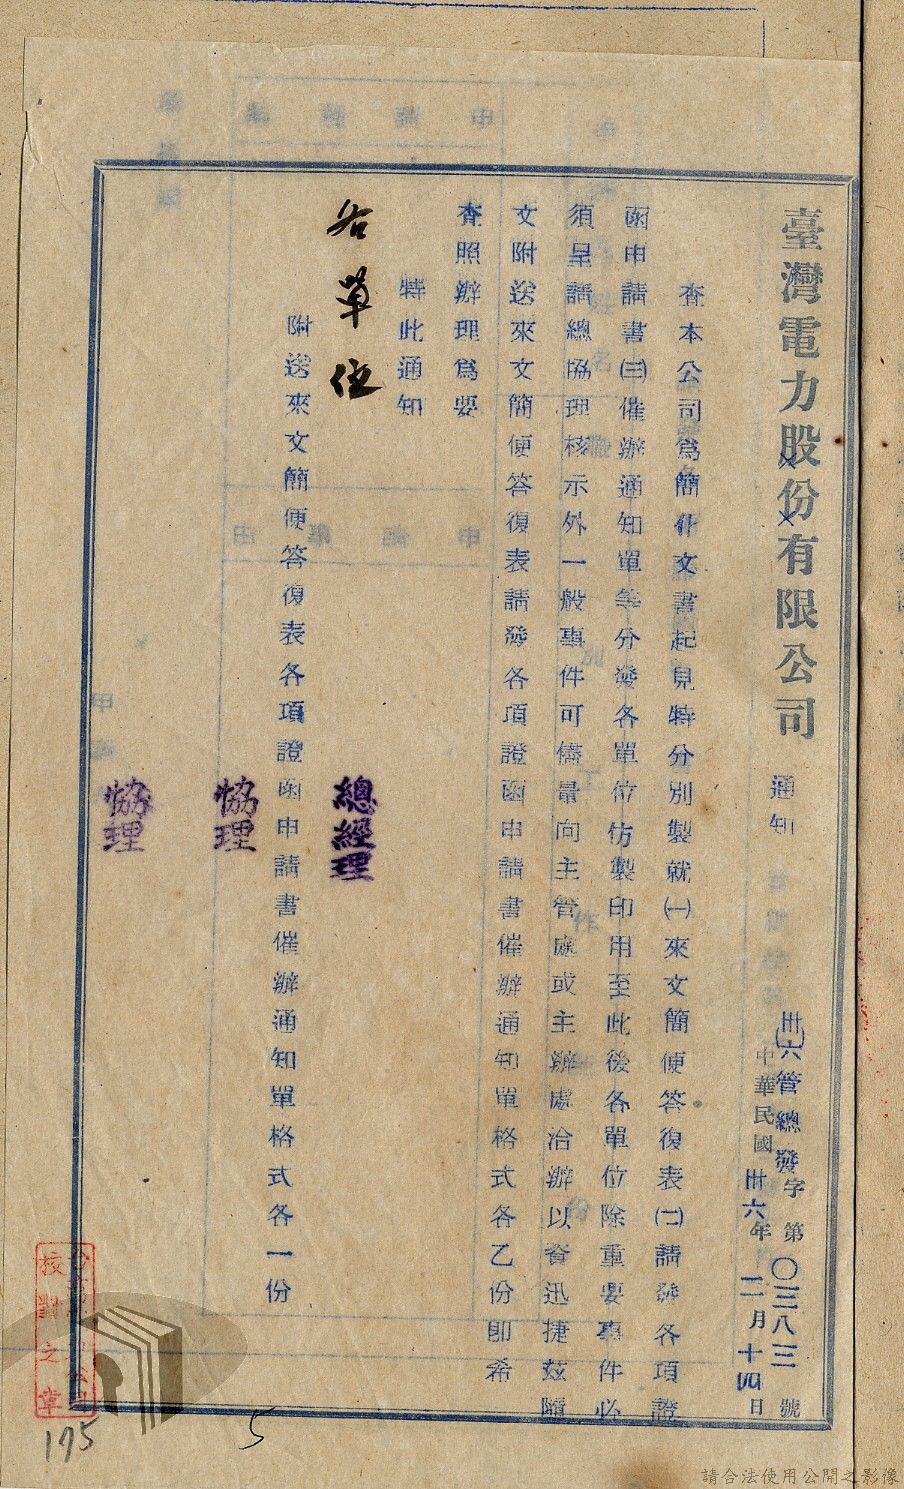 臺灣電力股份有限公司 通知
卅六管總發字第〇三八三號
中華民國卅六年二月十四日
查本公司爲簡化文書起見特分別製就㈠來文簡便答復表㈡請發各項證
函申請書㈢催辦通知單等分發各單位仿製印用至此後各單位除重要事件必
須呈請總協理核示外一般事件可儘量向主管處或主辦處洽辦以資迅捷茲隨
文附送來文簡便答復表請發各項證函申請書催辦通知單格式各乙份卽希
查照辦理爲要
特此通知
各單位
附送來文簡便答復表各項證函申請書催辦通知單格式各一份
總經理
協理
協理
核對之章
175
5
請合法使用公開之影像